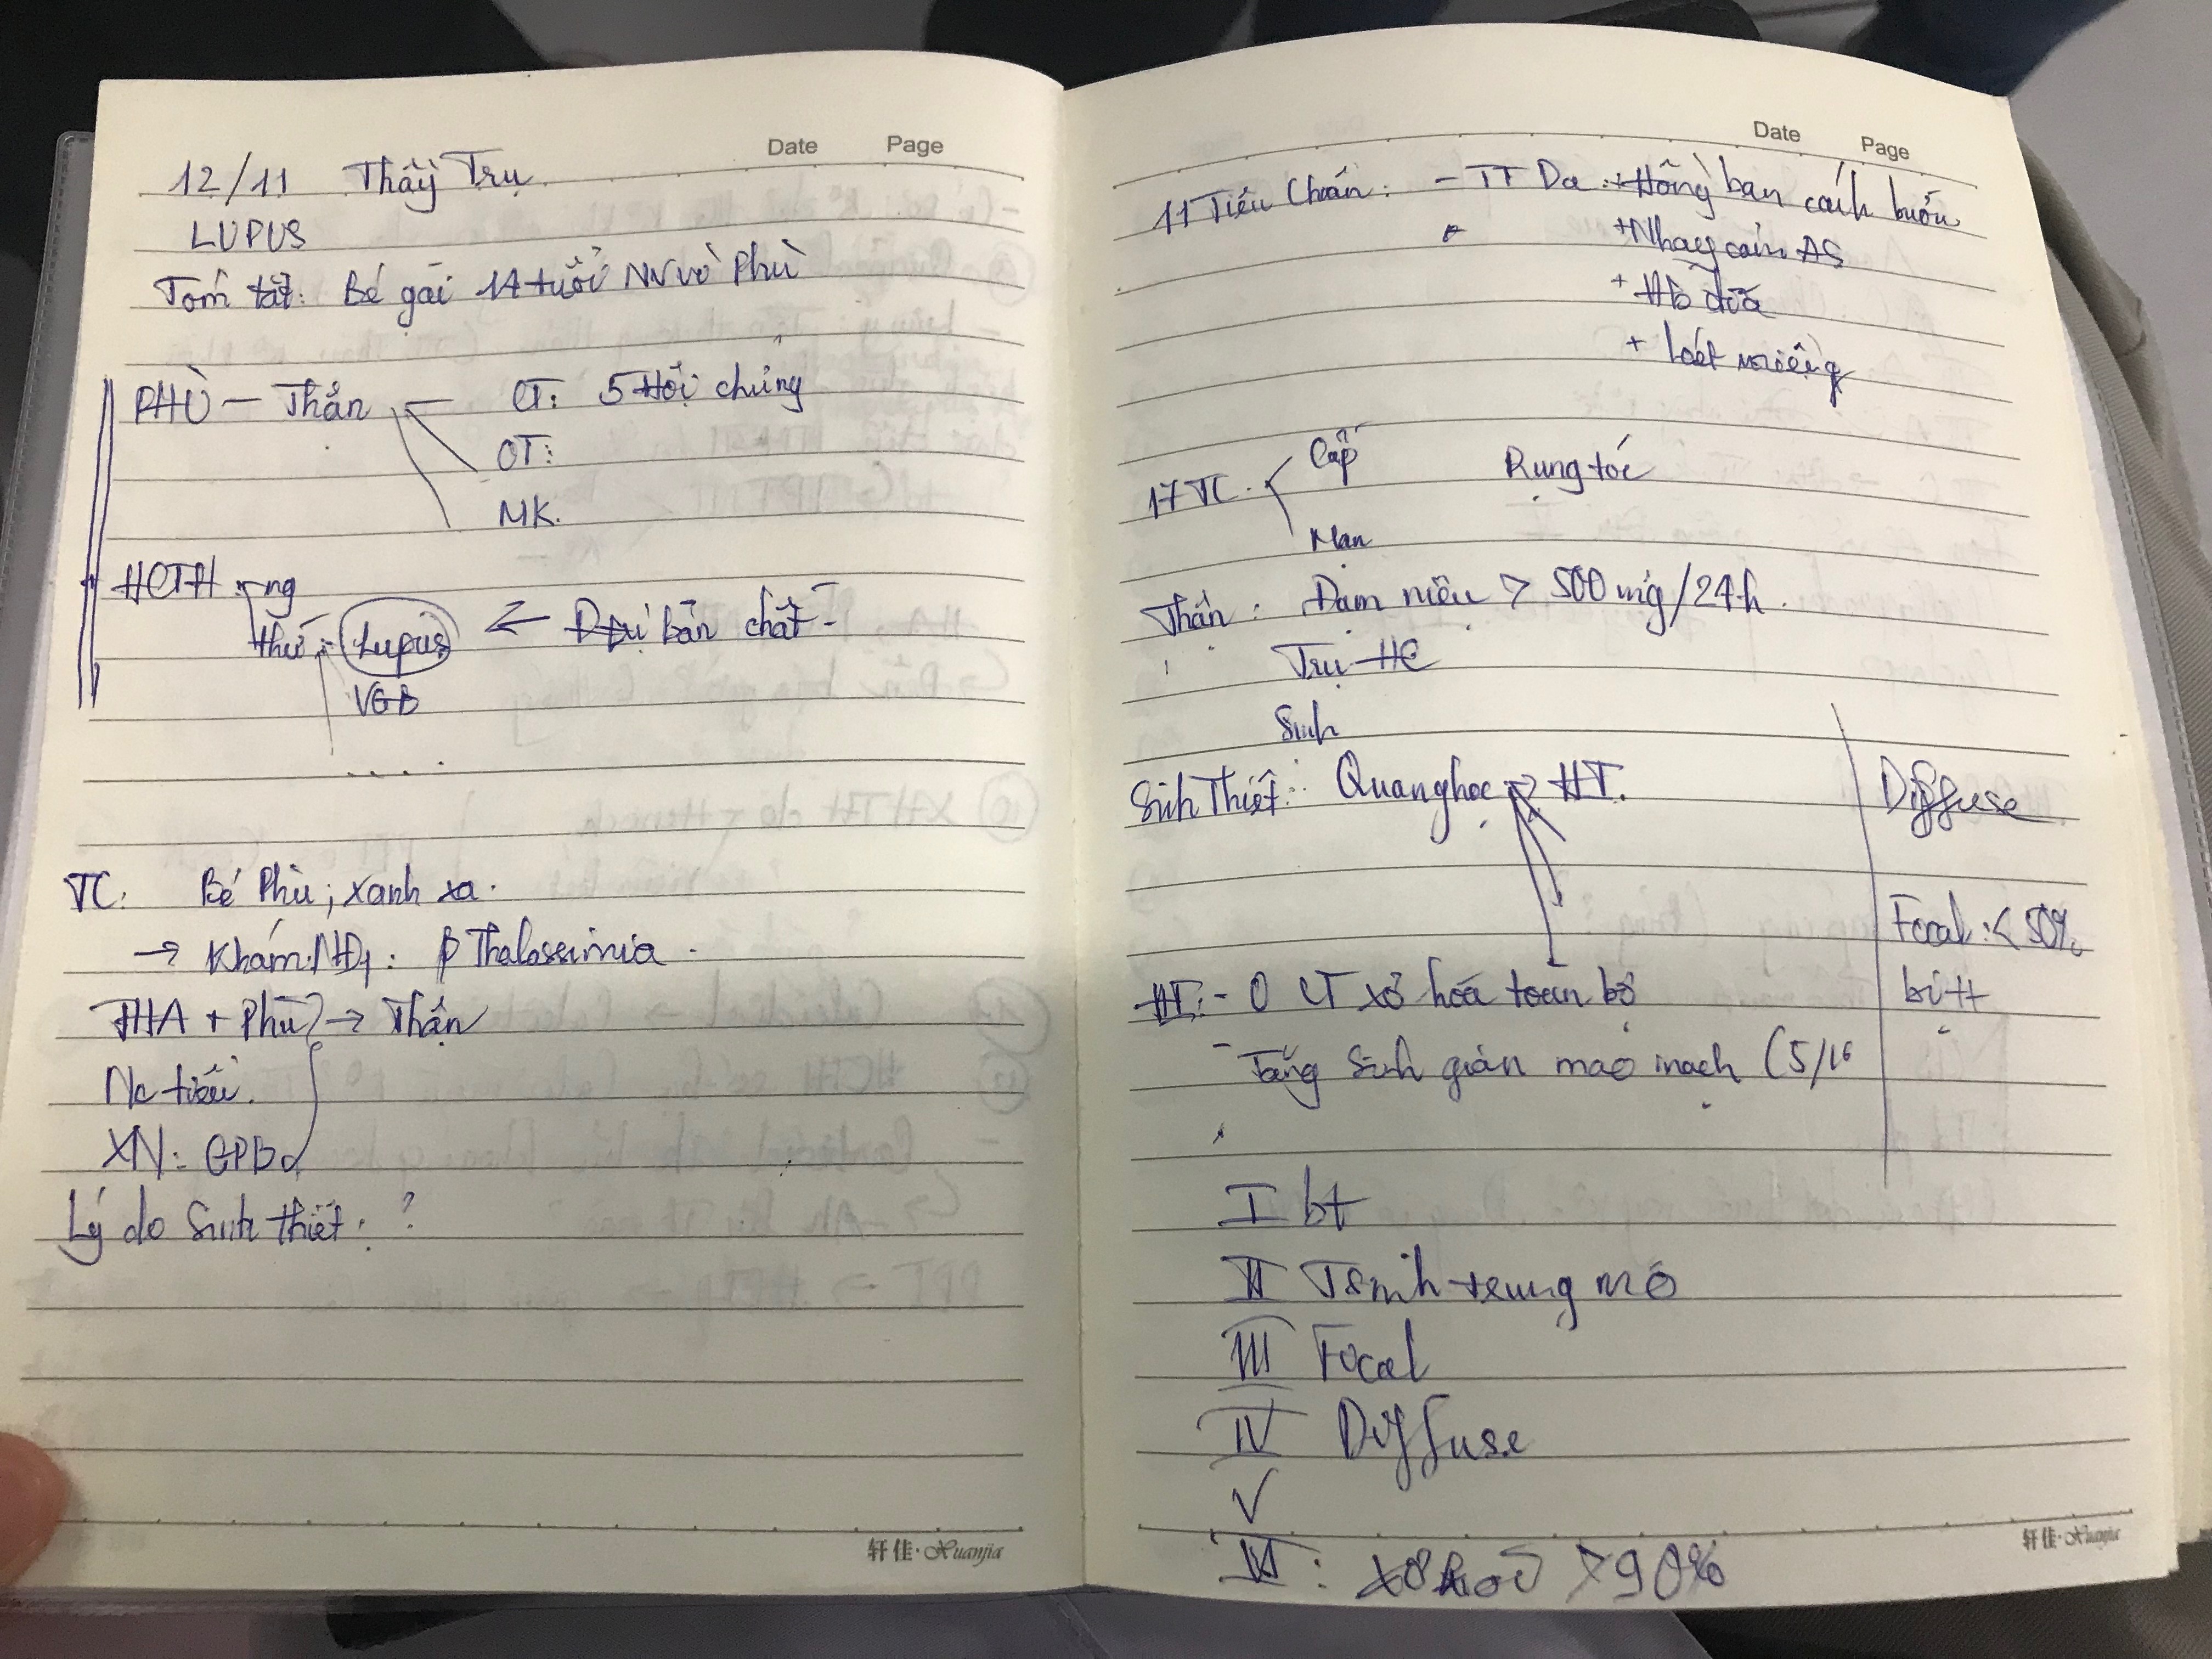 Date Page
12/11 Thầy Trụ
LUPUS
Tóm tắt: Bé gái 14 tuổi NV vì Phù
PHÙ — Thận CT: 5 Hội chứng
OT:
MK.
HCTH ng
thứ: Lupus ← bản chất -
VGB
....
TC: Bé Phù; xanh xa.
→ Khám NĐ1: β Thalassimia.
THA + Phù → Thận
Nc tiểu.
XN: GPB
Lý do Sinh thiết: ?
轩佳·Xuanjia
Date Page
11 Tiêu Chuẩn: - TT Da: + Hồng ban cánh bướm
+ Nhạy cảm AS
+ HB dĩa
+ loét miệng
17 TC Cấp Rụng tóc
Mạn
Thận: Đạm niệu > 500 mg/24h.
Trụ HC
Sinh
Sinh Thiết: Quang học HT.
Diffuse
Focal: < 50%
bí tt
HT: - 0 CT xơ hóa toàn bộ
- Tăng sinh gian mao mạch (5/16
I bt
II TSinh trung mô
III Focal
IV Diffuse
V
VI: xơ hoá >90%
轩佳·Xuanjia